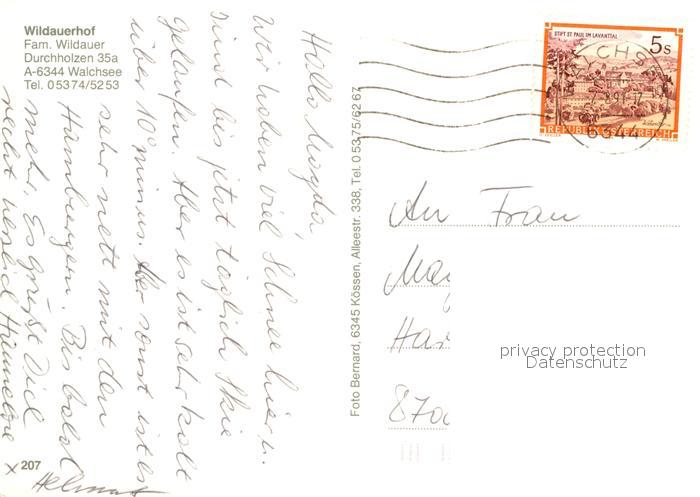 Wildauerhof
Fam. Wildauer
Durchholzen 35a
A-6344 Walchsee
Tel. 05374/5253
Hallo Magda,
Wir haben viel Schnee hier u.
sind bis jetzt täglich Skie
gelaufen. Aber es ist sehr kalt
über 10° minus. Aber sonst ist es
sehr nett mit den
Hamburgern. Bis bald
mehr. Es grüßt Dich
recht herzlich
Helmut
207
Foto Bernard, 6345 Kössen, Alleestr. 338, Tel. 05375/6267
STIFT ST. PAUL IM LAVANTTAL
5 S
REPUBLIK ÖSTERREICH
6344
An Frau
Mag
Har
870
privacy protection
Datenschutz